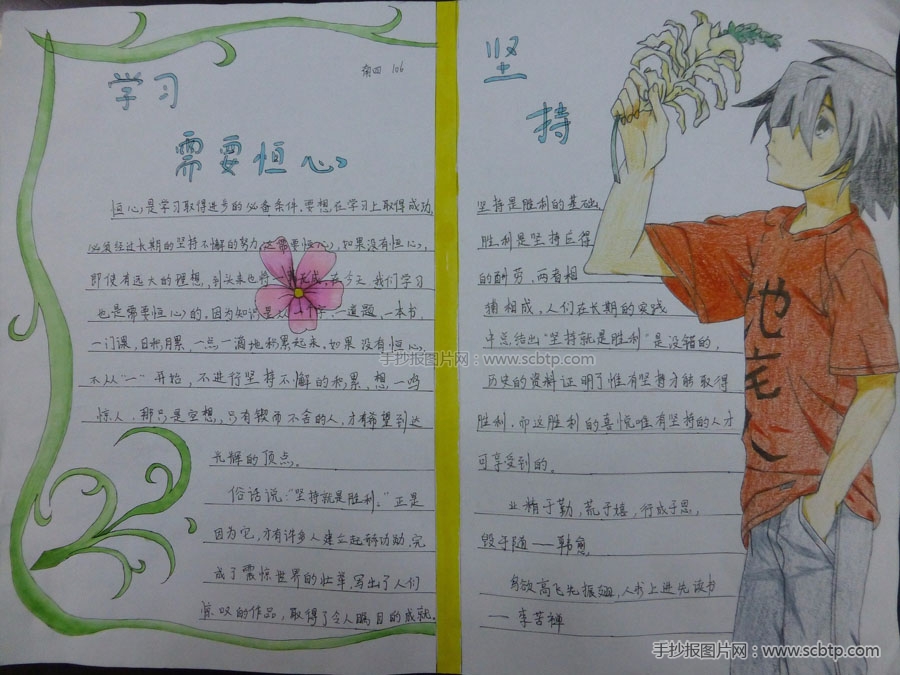 学习
106
需要恒心
恒心是学习取得进步的必备条件,要想在学习上取得成功,
必须经过长期的坚持不懈的努力,这需要恒心,如果没有恒心,
即使有远大的理想,到头来也将一事无成,在今天,我们学习
也是需要恒心的,因为知识是从一个字、一道题,一本书,
一门课,日积月累,一点一滴地积累起来,如果没有恒心,
不从“一”开始,不进行坚持不懈的积累,想一鸣
惊人,那只是空想,只有锲而不舍的人,才有希望到达
光辉的顶点。
俗话说:“坚持就是胜利。”正是
因为它,才有许多人建立起丰功劭,完
成了震惊世界的壮草,写出了人们
惊叹的作品,取得了令人瞩目的成就。
坚
持
坚持是胜利的基础,
胜利是坚持应得
的酬劳,两者相
辅相成,人们在长期的实践
中总结出“坚持就是胜利”是没错的,
历史的资料证明了惟有坚持才能取得
胜利,而这胜利的喜悦唯有坚持的人才
可享受到的。
业精于勤,荒于嬉,行成于思,
毁于随——韩愈
鸟欲高飞先振翅,人求上进先读书
——李苦禅
手抄报图片网:www.scbtp.com
手抄报图片网:www.scbtp.com